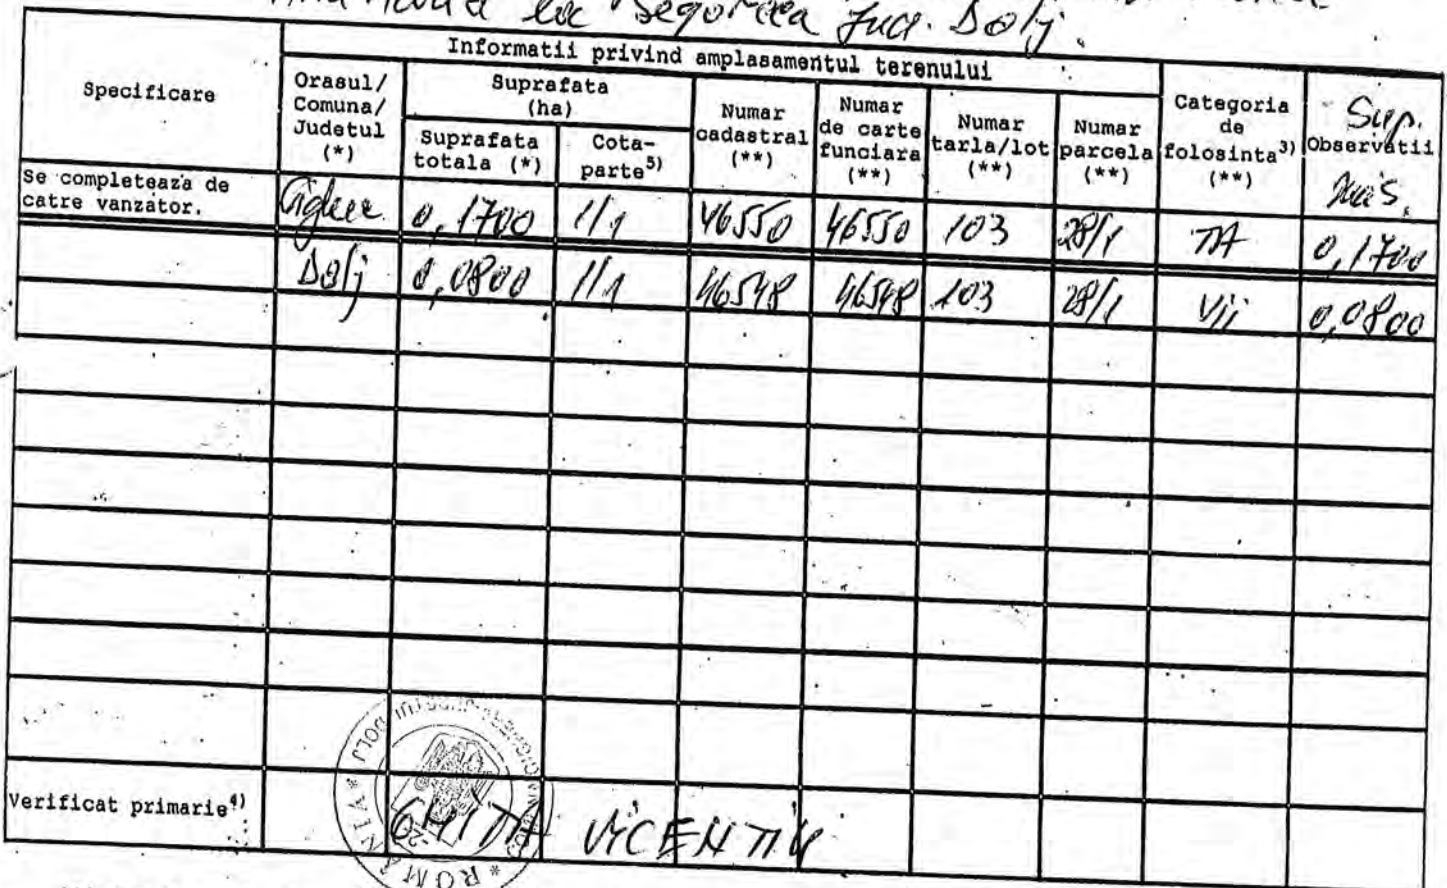 Segarcea Jud. Dolj.
Informatii privind amplasamentul terenului
Specificare
Orasul/
Comuna/
Judetul
(*)
Suprafata
(ha)
Suprafata
totala (*)
Cota-
parte5)
Numar
cadastral
(**)
Numar
de carte
funciara
(**)
Numar
tarla/lot
(**)
Numar
parcela
(**)
Categoria
de
folosinta3)
(**)
Sup.
Observatii
mas.
Se completeaza de
catre vanzator.
0,1700 1/1 46550 46550 103 28/1 TA 0,1700
Dolj 0,0800 1/1 46548 46548 103 28/1 Vii 0,0800
Verificat primarie4)
GHITA VICENTIU
* ROMÂNIA *